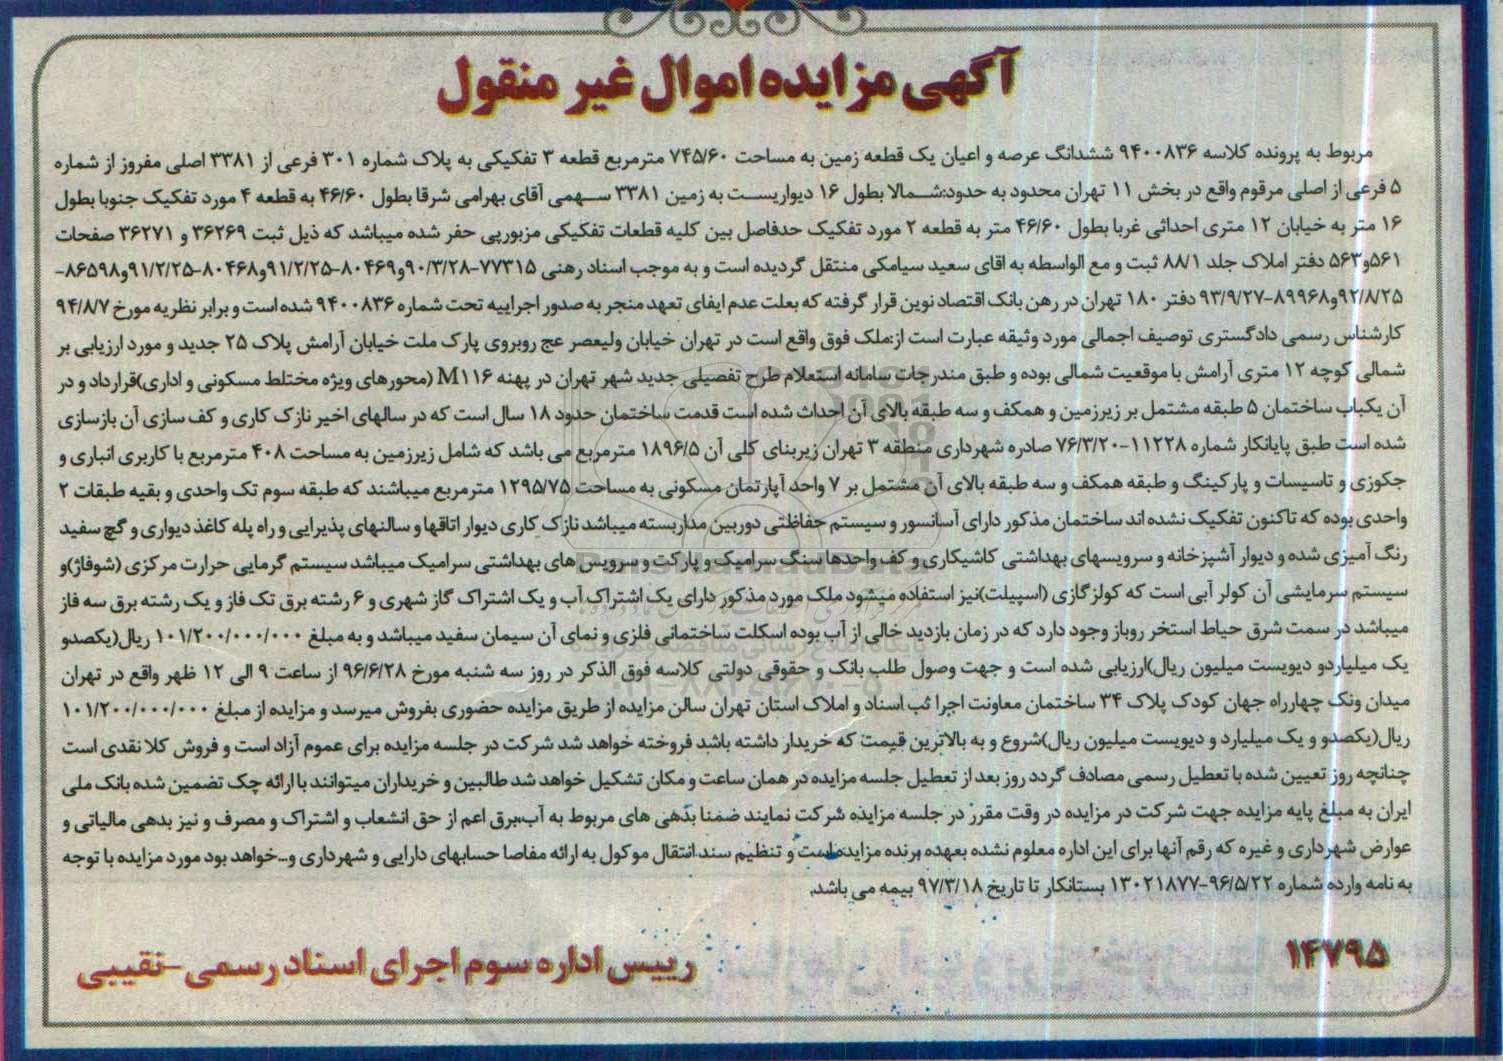 آگهی مزایده اموال غیر منقول
مربوط به پرونده کلاسه ۹۴۰۰۸۳۶ ششدانگ عرصه و اعیان یک قطعه زمین به مساحت ۷۴۵/۶۰ مترمربع قطعه ۳ تفکیکی به پلاک شماره ۳۰۱ فرعی از ۳۳۸۱ اصلی مفروز از شماره
۵ فرعی از اصلی مرقوم واقع در بخش ۱۱ تهران محدود به حدود:شمالا بطول ۱۶ دیواریست به زمین ۳۳۸۱ سهمی آقای بهرامی شرقا بطول ۴۶/۶۰ به قطعه ۴ مورد تفکیک جنوبا بطول
۱۶ متر به خیابان ۱۲ متری احداثی غربا بطول ۴۶/۶۰ متر به قطعه ۲ مورد تفکیک حدفاصل بین کلیه قطعات تفکیکی مزبورپی حفر شده میباشد که ذیل ثبت ۳۶۲۶۹ و ۳۶۲۷۱ صفحات
۵۶۱و۵۶۳ دفتر املاک جلد ۸۸/۱ ثبت و مع الواسطه به اقای سعید سیامکی منتقل گردیده است و به موجب اسناد رهنی ۷۷۳۱۵-۹۰/۳/۲۸و۸۰۴۶۹-۹۱/۲/۲۵و۸۰۴۶۸-۹۱/۲/۲۵و۸۶۵۹۸-
۹۲/۸/۲۵و۸۹۹۶۸-۹۳/۹/۲۷ دفتر ۱۸۰ تهران در رهن بانک اقتصاد نوین قرار گرفته که بعلت عدم ایفای تعهد منجر به صدور اجراییه تحت شماره ۹۴۰۰۸۳۶ شده است و برابر نظریه مورخ ۹۴/۸/۷
کارشناس رسمی دادگستری توصیف اجمالی مورد وثیقه عبارت است از:ملک فوق واقع است در تهران خیابان ولیعصر عج روبروی پارک ملت خیابان آرامش پلاک ۲۵ جدید و مورد ارزیابی بر
شمالی کوچه ۱۲ متری آرامش با موقعیت شمالی بوده و طبق مندرجات سامانه استعلام طرح تفصیلی جدید شهر تهران در پهنه M۱۱۶ (محورهای ویژه مختلط مسکونی و اداری)قرارداد و در
آن یکباب ساختمان ۵ طبقه مشتمل بر زیرزمین و همکف و سه طبقه بالای آن احداث شده است قدمت ساختمان حدود ۱۸ سال است که در سالهای اخیر نازک کاری و کف سازی آن بازسازی
شده است طبق پایانکار شماره ۱۱۲۲۸-۷۶/۳/۲۰ صادره شهرداری منطقه ۳ تهران زیربنای کلی آن ۱۸۹۶/۵ مترمربع می باشد که شامل زیرزمین به مساحت ۴۰۸ مترمربع با کاربری انباری و
جکوزی و تاسیسات و پارکینگ و طبقه همکف و سه طبقه بالای آن مشتمل بر ۷ واحد آپارتمان مسکونی به مساحت ۱۲۹۵/۷۵ مترمربع میباشند که طبقه سوم تک واحدی و بقیه طبقات ۲
واحدی بوده که تاکنون تفکیک نشده اند ساختمان مذکور دارای آسانسور و سیستم حفاظتی دوربین مداربسته میباشد نازک کاری دیوار اتاقها و سالنهای پذیرایی و راه پله کاغذ دیواری و گچ سفید
رنگ آمیزی شده و دیوار آشپزخانه و سرویسهای بهداشتی کاشیکاری و کف واحدها سنگ سرامیک و پارکت و سرویس های بهداشتی سرامیک میباشد سیستم گرمایی حرارت مرکزی (شوفاژ)و
سیستم سرمایشی آن کولر آبی است که کولرگازی (اسپیلت)نیز استفاده میشود ملک مورد مذکور دارای یک اشتراک آب و یک اشتراک گاز شهری و ۶ رشته برق تک فاز و یک رشته برق سه فاز
میباشد در سمت شرق حیاط استخر روباز وجود دارد که در زمان بازدید خالی از آب بوده اسکلت ساختمانی فلزی و نمای آن سیمان سفید میباشد و به مبلغ ۱۰۱/۲۰۰/۰۰۰/۰۰۰ ریال(یکصدو
یک میلیاردو دیویست میلیون ریال)ارزیابی شده است و جهت وصول طلب بانک و حقوقی دولتی کلاسه فوق الذکر در روز سه شنبه مورخ ۹۶/۶/۲۸ از ساعت ۹ الی ۱۲ ظهر واقع در تهران
میدان ونک چهارراه جهان کودک پلاک ۳۴ ساختمان معاونت اجرا ثب اسناد و املاک استان تهران سالن مزایده از طریق مزایده حضوری بفروش میرسد و مزایده از مبلغ ۱۰۱/۲۰۰/۰۰۰/۰۰۰
ریال(یکصدو و یک میلیارد و دیویست میلیون ریال)شروع و به بالاترین قیمت که خریدار داشته باشد فروخته خواهد شد شرکت در جلسه مزایده برای عموم آزاد است و فروش کلا نقدی است
چنانچه روز تعیین شده با تعطیل رسمی مصادف گردد روز بعد از تعطیل جلسه مزایده در همان ساعت و مکان تشکیل خواهد شد طالبین و خریداران میتوانند با ارائه چک تضمین شده بانک ملی
ایران به مبلغ پایه مزایده جهت شرکت در مزایده در وقت مقرر در جلسه مزایده شرکت نمایند ضمنا بدهی های مربوط به آب،برق اعم از حق انشعاب و اشتراک و مصرف و نیز بدهی مالیاتی و
عوارض شهرداری و غیره که رقم آنها برای این اداره معلوم نشده بعهده برنده مزایده است و تنظیم سند انتقال موکول به ارائه مفاصا حسابهای دارایی و شهرداری و...خواهد بود مورد مزایده با توجه
به نامه وارده شماره ۹۶/۵/۲۲-۱۳۰۲۱۸۷۷ بستانکار تا تاریخ ۹۷/۳/۱۸ بیمه می باشد.
۱۴۷۹۵
رییس اداره سوم اجرای اسناد رسمی-نقیبی